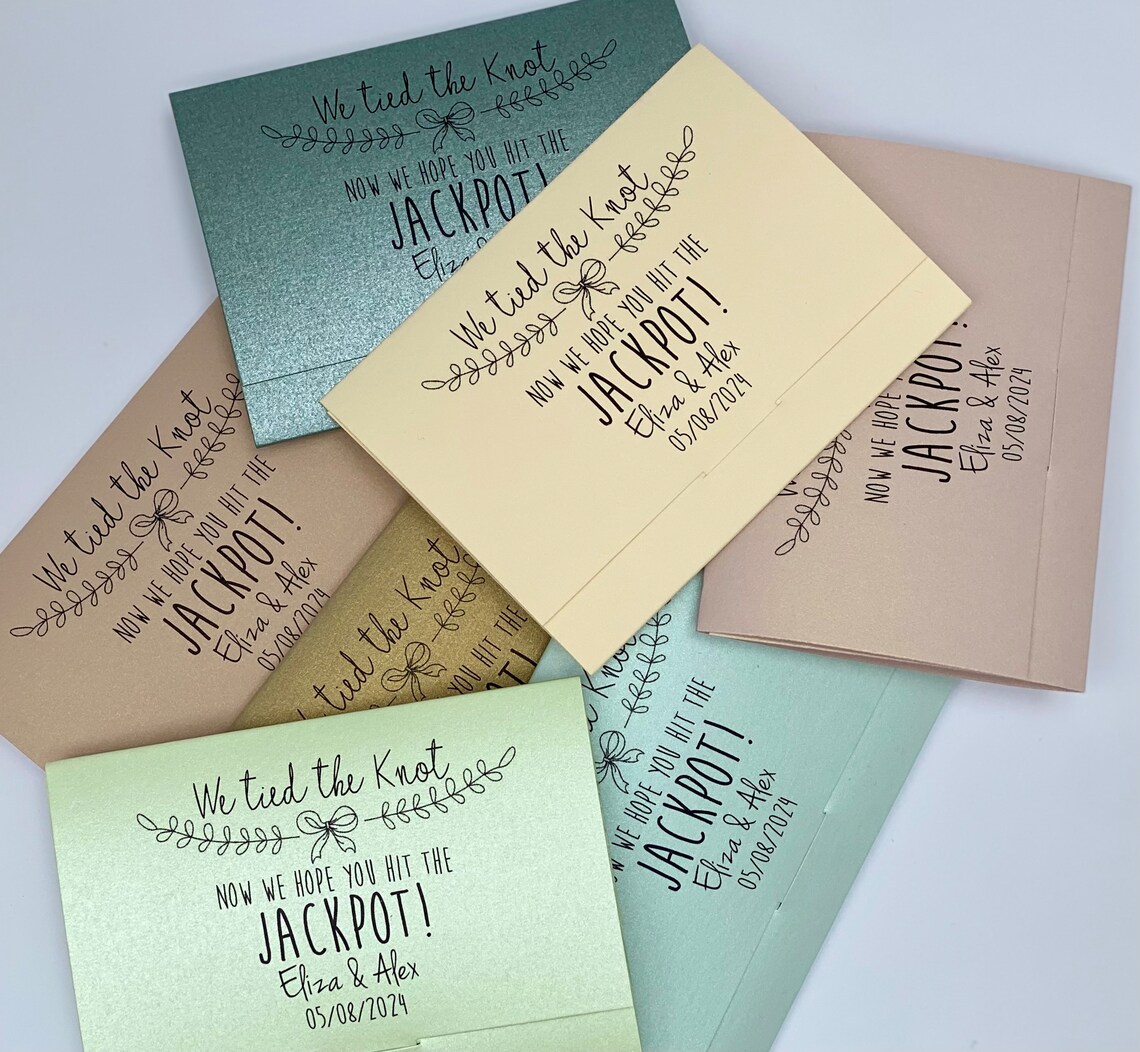 We tied the Knot
NOW WE HOPE YOU HIT THE
JACKPOT!
We tied the Knot
NOW WE HOPE YOU HIT THE
JACKPOT!
Eliza & Alex
05/08/2024
NOW WE HOPE
JACKPOT!
Eliza & Alex
05/08/2024
We tied the Knot
NOW WE HOPE YOU HIT THE
JACKPOT!
Eliza & Alex
05/08/2024
tied the Knot
YOU HIT THE
Knot
WE HOPE YOU HIT THE
JACKPOT!
Eliza & Alex
05/08/2024
We tied the Knot
NOW WE HOPE YOU HIT THE
JACKPOT!
Eliza & Alex
05/08/2024